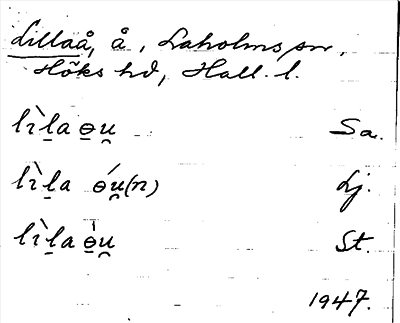 Lillaå, å, Laholms sn,
Höks hd, Hall. l.
lìl̠a ɵ̠u̯ Sa.
lìl̠a ɵ́u̯(n) Lj.
lìl̠a ɵ̠́u̯ St.
1947.